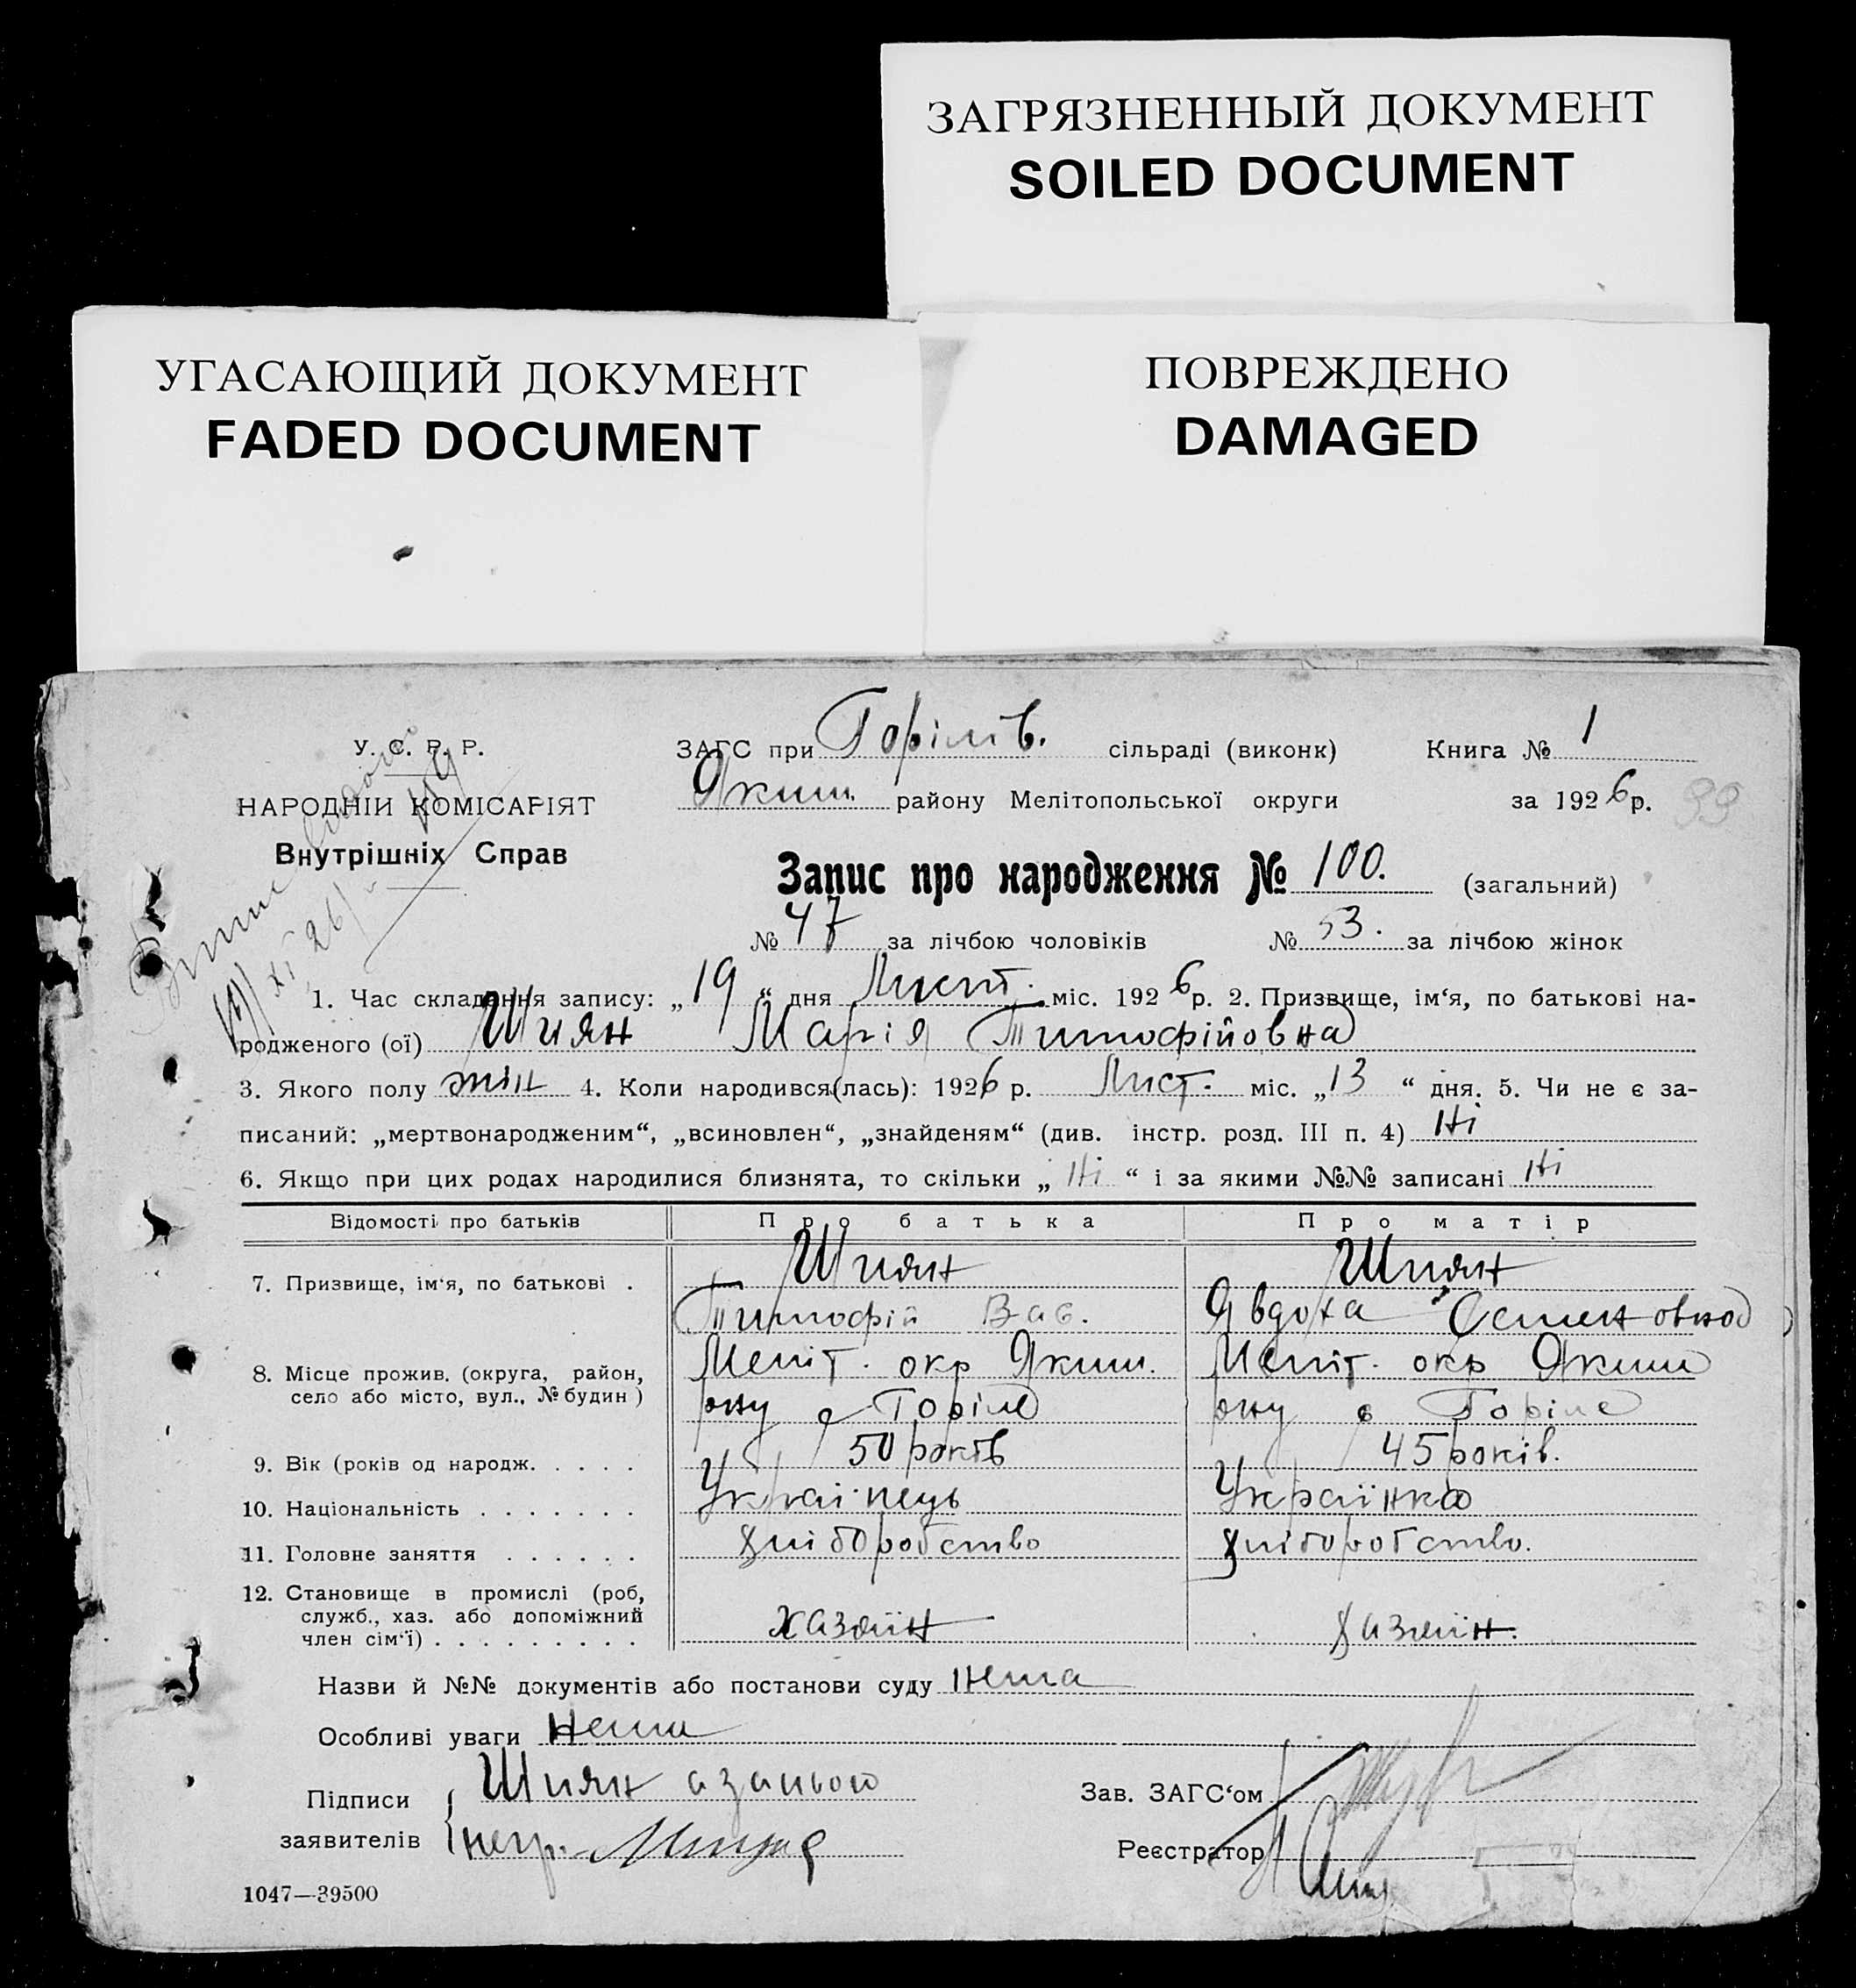 ЗАГРЯЗНЕННЫЙ ДОКУМЕНТ
SOILED DOCUMENT
УГАСАЮЩИЙ ДОКУМЕНТ
FADED DOCUMENT
ПОВРЕЖДЕНО
DAMAGED
У. С. Р. Р.
НАРОДНІЙ КОМІСАРІЯТ
Внутрішніх Справ
ЗАГС при Горілів. сільраді (виконк) Книга № 1
Яким. району Мелітопольської округи за 1926 р. 99
Запис про народження № 100. (загальний)
№ 47 за лічбою чоловіків № 53. за лічбою жінок
1. Час складання запису: „19“ дня Лист. міс. 1926 р. 2. Призвище, ім‘я, по батькові на-
родженого (ої) Шиян Марія Тимофійовна
3. Якого полу жін 4. Коли народився(лась): 1926 р. Лист. міс. „13“ дня. 5. Чи не є за-
писаний: „мертвонародженим“, „всиновлен“, „знайденям“ (див. інстр. розд. III п. 4) Ні
6. Якщо при цих родах народилися близнята, то скільки „Ні“ і за якими №№ записані Ні
Відомості про батьків Про батька Про матір
7. Призвище, ім‘я, по батькові . Шиян Шиян
Тимофій Вас. Явдоха
8. Місце прожив. (округа, район, Меліт. окр Яким. Меліт. окр Яким
село або місто, вул., № будин) рну с Горіле рну с Горіле
9. Вік (років од народж. . . . . 50 років 45 років.
10. Національність . . . . . . . Українець Українка
11. Головне заняття . . . . . . хліборобство хліборобство.
12. Становище в промислі (роб,
служб., хаз. або допоміжний
член сім‘ї) . . . . . . . . . хазяїн хазяїн.
Назви й №№ документів або постанови суду Нема
Особливі уваги Нема
Підписи Шиян а за нього
заявителів негр.
Зав. ЗАГС‘ом
Реєстратор
1047—39500